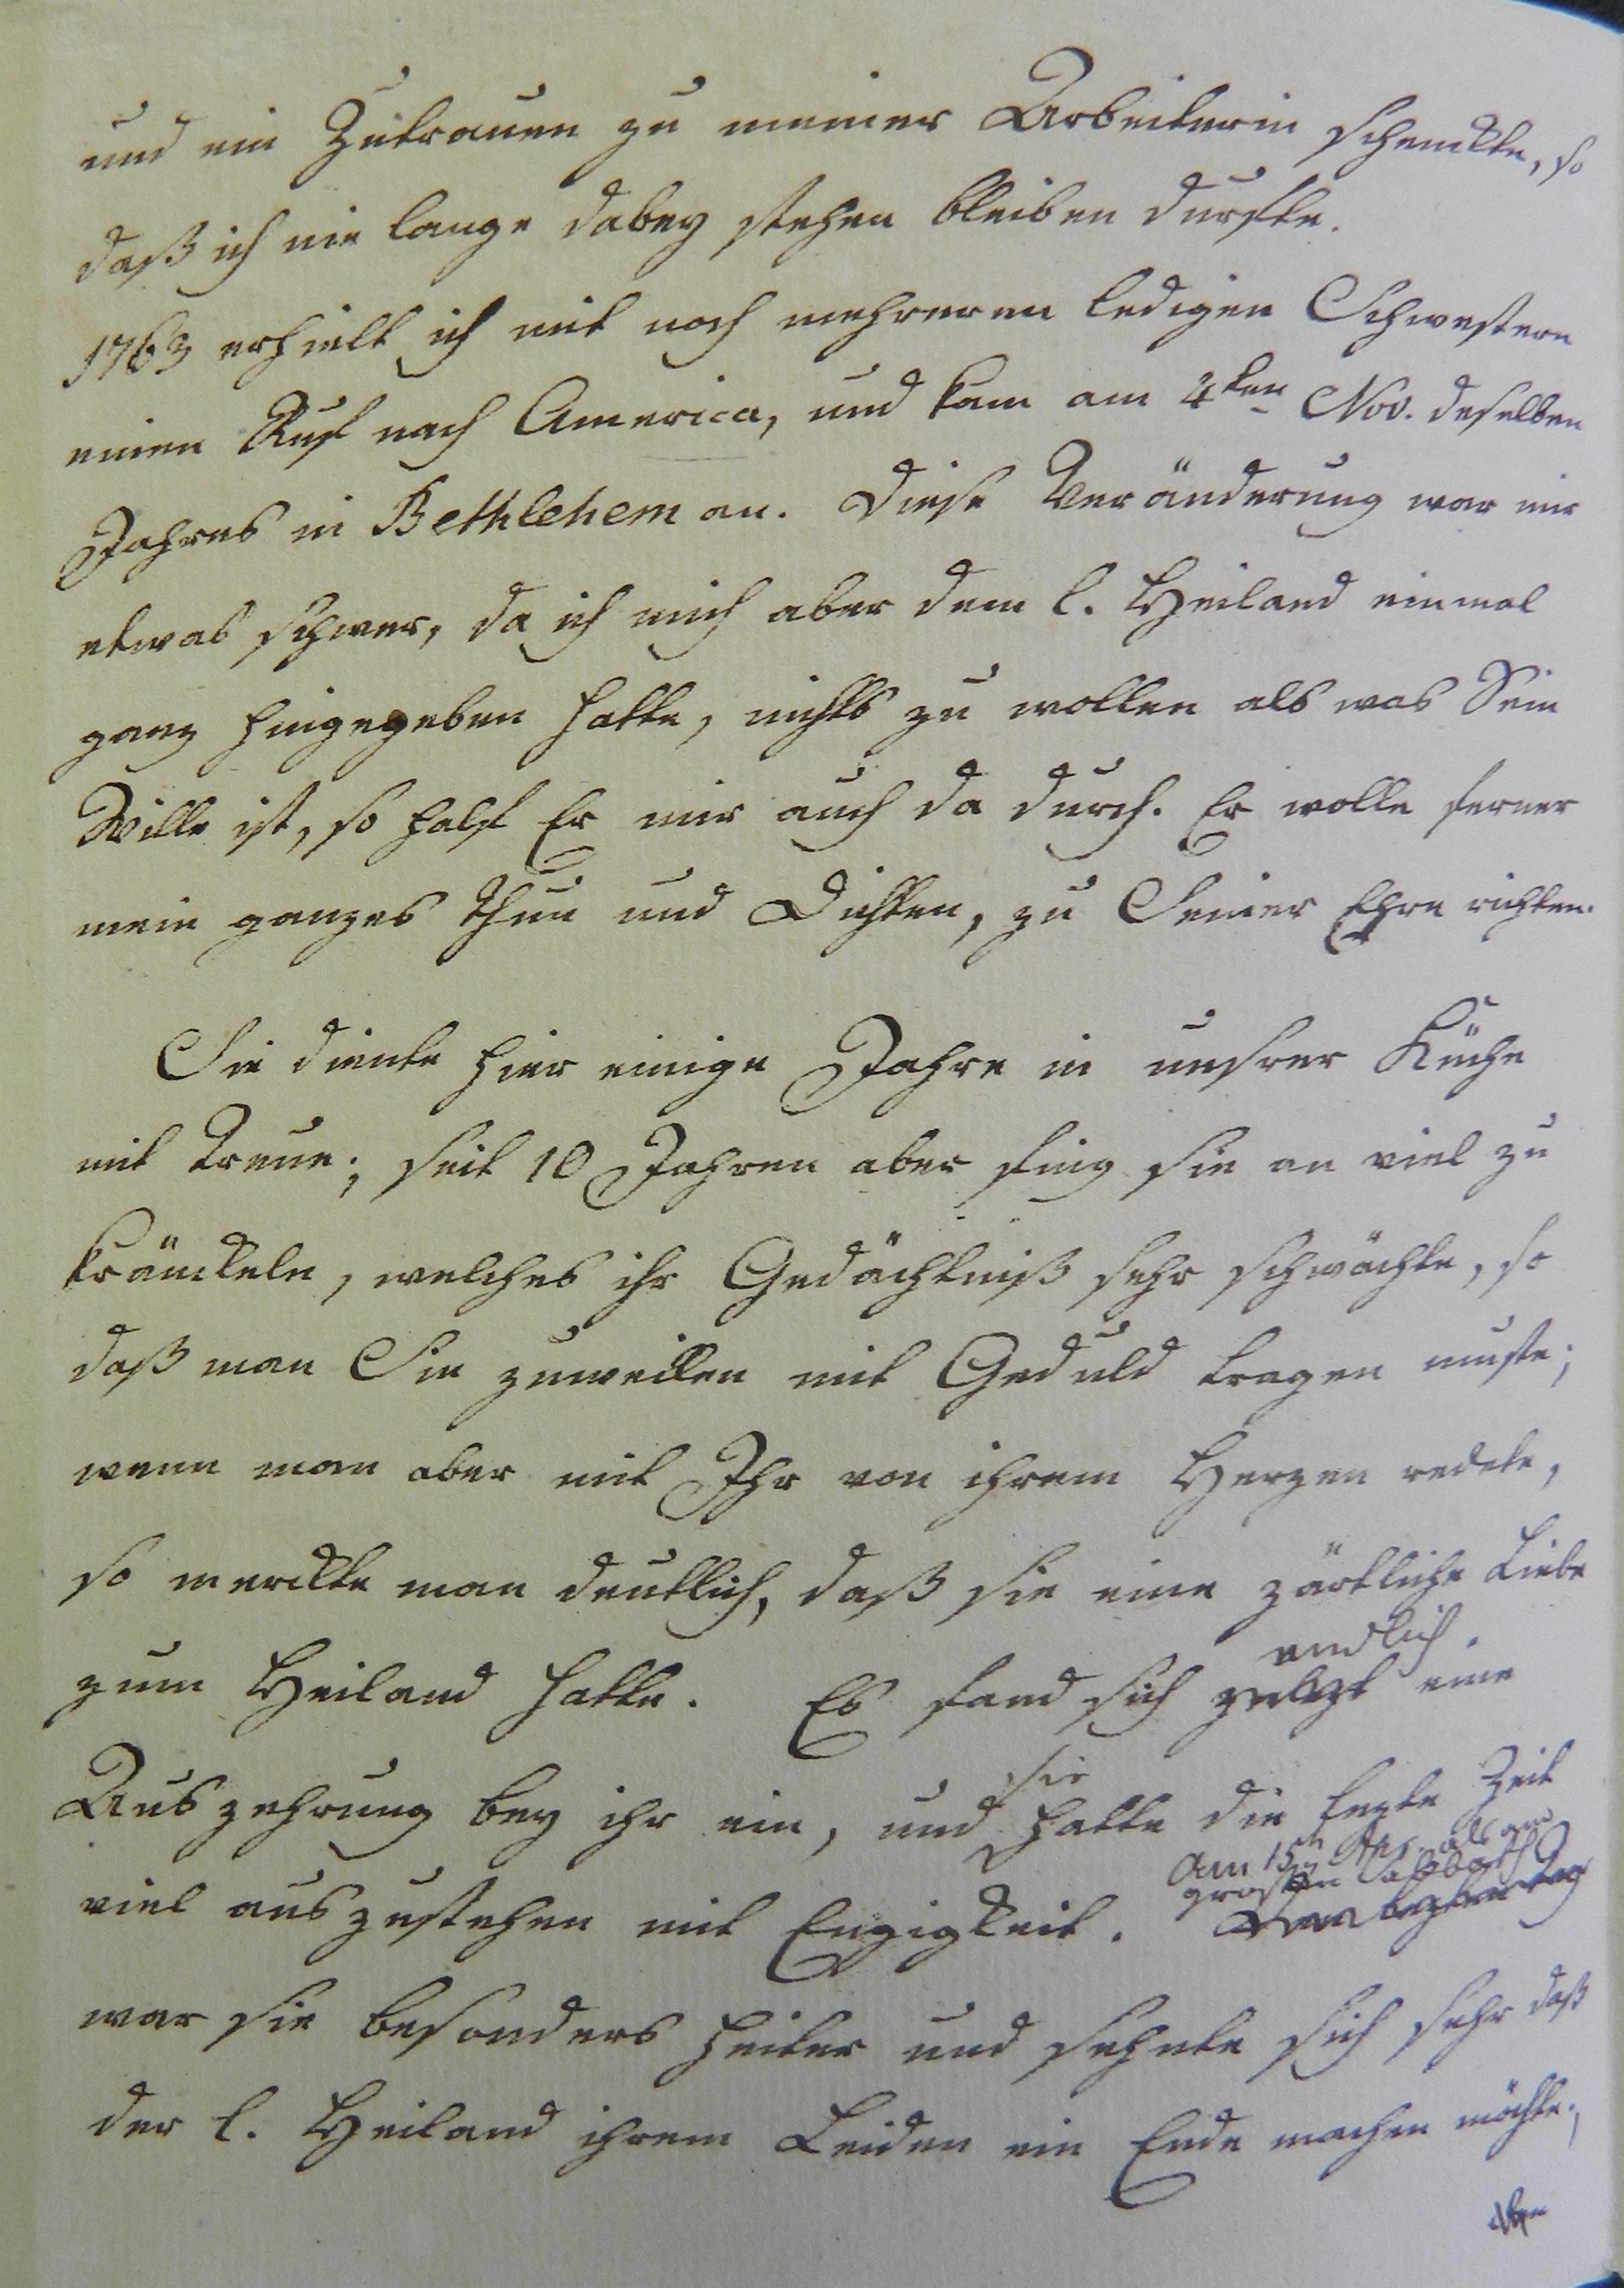 und ein Zutrauen zu meiner Arbeiterin schenckte, so
daß ich nie lange dabey stehen bleiben durfte.
1763 erhielt ich mit noch mehreren ledigen Schwestern
einen Ruf nach America, und kam am 4ten Nov. deselben
Jahres in Bethlehem an. Diese Veränderung war mir
etwas schwer, da ich mich aber dem l. Heiland einmal
ganz hingegeben hatte, nichts zu wollen als was Sein
Wille ist, so half Er mir auch da durch. Er wolle ferner
mein ganzes Thun und Dichten, zu Seiner Ehre richten.
Sie diente hier einige Jahre in unsrer Küche
mit Treue; seit 10 Jahren aber fing sie an viel zu
kränckeln, welches ihr Gedächtniß sehr schwächte, so
daß man Sie zuweilen mit Geduld tragen muste;
wenn man aber mit Ihr von ihrem Herzen redete,
so merckte man deutlich, daß sie eine zärtliche Liebe
endlich
zum Heiland hatte. Es fand sich zulezt eine
sie
Auszehrung bey ihr ein, und hatte die lezte Zeit
Am 15n Apr. als am
großen Sabbath
viel auszustehen mit Engigkeit. Den lezten Tag
war sie besonders heiter und sehnte sich sehr daß
der l. Heiland ihrem Leiden ein Ende machen möchte;